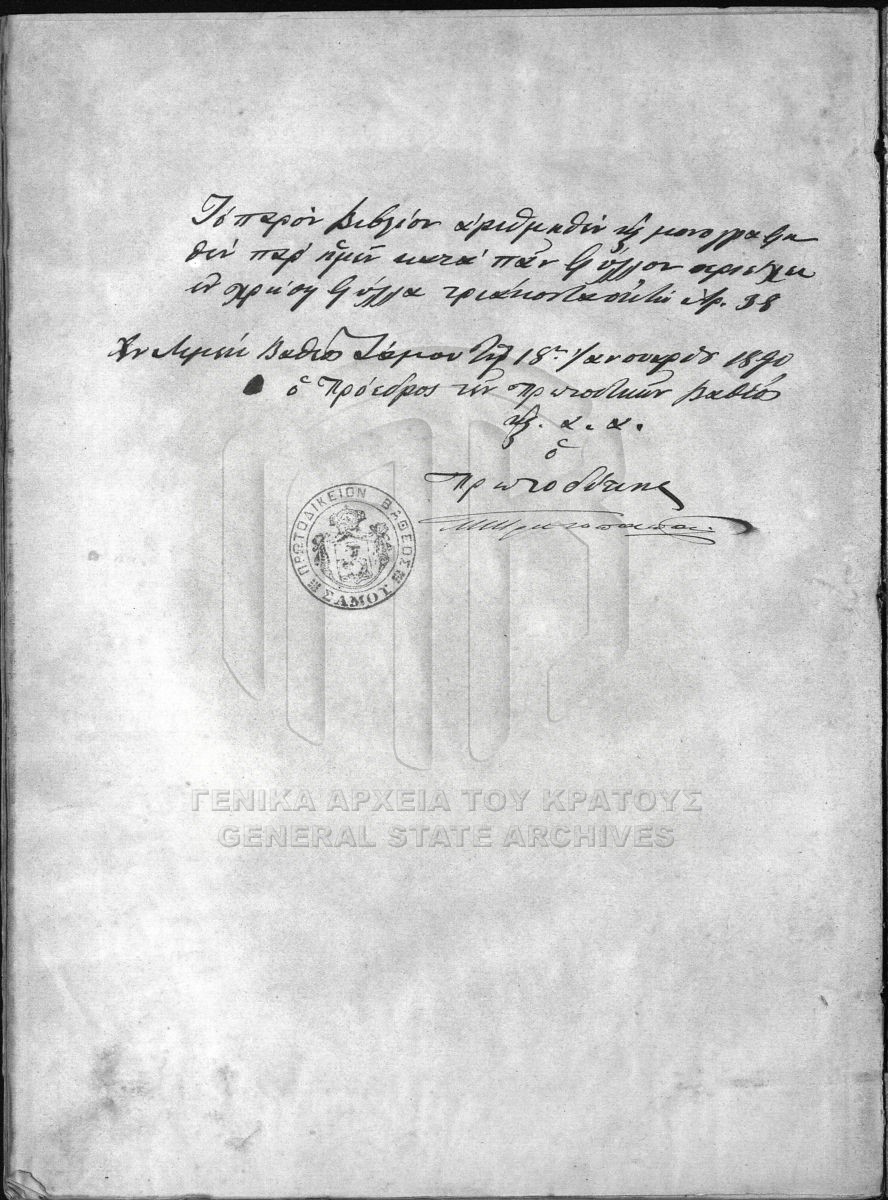 Τὸ παρὸν Βιβλίον ἀριθμηθὲν καὶ μονογραφη
θὲν παρ' ἡμῶν κατὰ πᾶν φύλλον περιέχει
ἐν χρήσει φύλλα τριάκοντα ὀκτὼ ἀρ. 38
Ἐν Λιμένι Βαθέος Σάμου τῇ 18ῃ Ἰανουαρίου 1890
ὁ Πρόεδρος τῶν Πρωτοδικῶν Βαθέος
κ. α. α.
ὁ
Πρωτοδίκης
ΠΡΩΤΟΔΙΚΕΙΟΝ ΒΑΘΕΟΣ
ΣΑΜΟΥ
ΓΕΝΙΚΑ ΑΡΧΕΙΑ ΤΟΥ ΚΡΑΤΟΥΣ
GENERAL STATE ARCHIVES